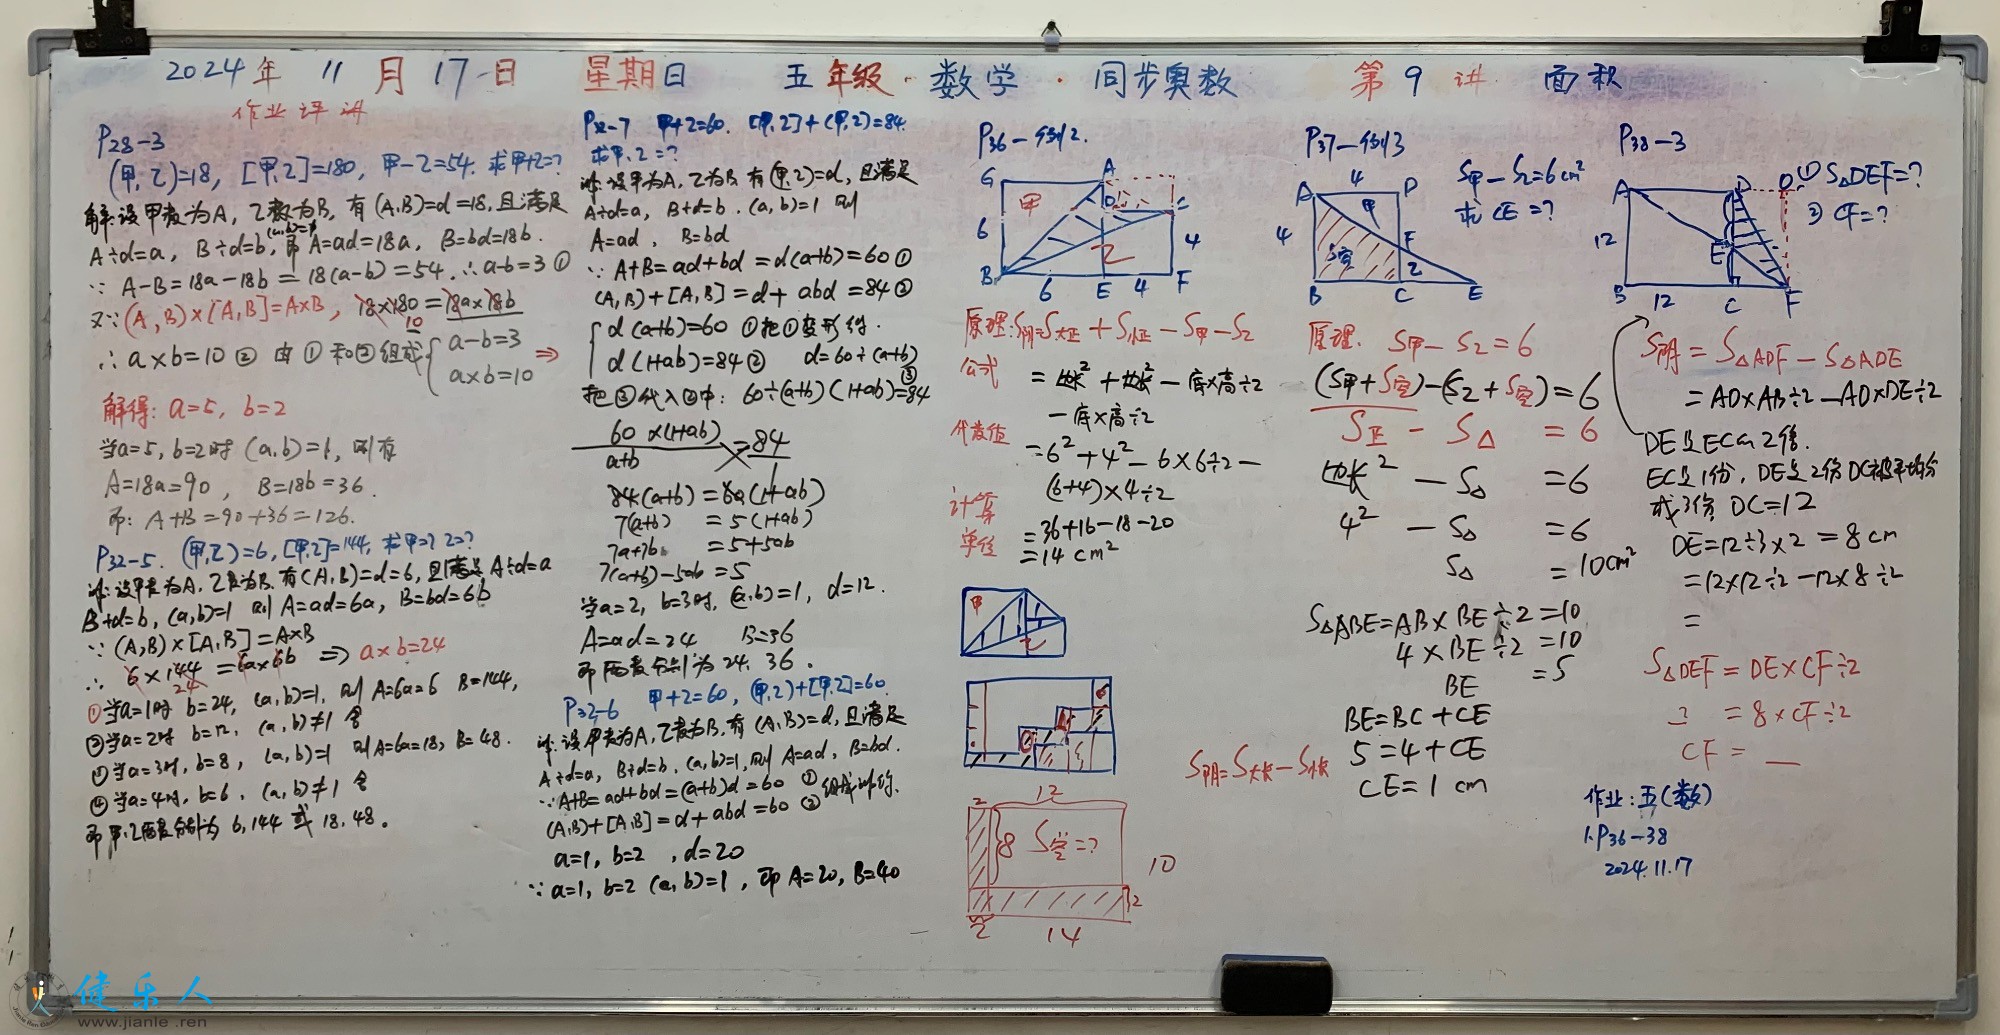 2024年 11月17日 星期日 五年级·数学·同步奥数 第9讲 面积
作业评讲
P28-3
(甲,乙)=18, [甲,乙]=180, 甲-乙=54. 求甲+乙=?
解:设甲数为A,乙数为B,有(A,B)=d=18,且满足
A÷d=a, B÷d=b, (a,b)=1 即 A=ad=18a, B=bd=18b.
∵ A-B=18a-18b=18(a-b)=54.∴a-b=3 ①
又∵(A,B)×[A,B]=A×B, 18×180=18a×18b
10
∴a×b=10 ② 由①和②组成{ a-b=3 ⇒
a×b=10
解得: a=5, b=2
当a=5, b=2时 (a,b)=1, 则有
A=18a=90, B=18b=36.
即: A+B=90+36=126.
P32-5. (甲,乙)=6, [甲,乙]=144, 求甲=? 乙=?
解:设甲数为A,乙数为B.有(A,B)=d=6,且满足A÷d=a
B÷d=b, (a,b)=1 则A=ad=6a, B=bd=6b
∵ (A,B)×[A,B]=A×B
∴ 6×144=6a×6b ⇒ a×b=24
24
①当a=1时 b=24, (a,b)=1, 则A=6a=6 B=144,
②当a=2时 b=12, (a,b)≠1 舍
③当a=3时, b=8, (a,b)=1 则A=6a=18, B=48.
④当a=4时, b=6, (a,b)≠1 舍
即甲,乙两数分别为 6,144 或 18,48。
P32-7 甲+乙=60. [甲,乙]+(甲,乙)=84.
求甲.乙=?
解:设甲为A,乙为B 有(甲,乙)=d,且满足
A÷d=a, B÷d=b.(a,b)=1 则
A=ad, B=bd
∵ A+B=ad+bd=d(a+b)=60 ①
(A,B)+[A,B]=d+abd=84 ②
{ d(a+b)=60 ①把①变形得.
d(1+ab)=84 ② d=60÷(a+b) ③
把③代入②中: 60÷(a+b)(1+ab)=84
60×(1+ab)
a+b
=84
1
84(a+b)=60(1+ab)
7(a+b)=5(1+ab)
7a+7b=5+5ab
7(a+b)-5ab=5
当a=2, b=3时, (a,b)=1, d=12.
A=ad=24 B=36
即两数分别为24, 36.
P32-6 甲+乙=60, (甲,乙)+[甲,乙]=60.
解:设甲数为A,乙数为B,有(A,B)=d,且满足
A÷d=a, B÷d=b.(a,b)=1,则A=ad, B=bd.
∵A+B=ad+bd=(a+b)d=60 ①
(A,B)+[A,B]=d+abd=60 ②组成解得.
a=1, b=2, d=20
∵a=1, b=2 (a,b)=1, 即A=20, B=40
P36-例2.
G A
甲 D C
6 乙 4
B 6 E 4 F
原理:S阴=S大正+S小正-S甲-S乙
公式 =边长²+边长²-底×高÷2
-底×高÷2
代数值 =6²+4²-6×6÷2-
(6+4)×4÷2
计算 =36+16-18-20
单位 =14 cm²
甲
乙
12
2
8 S空=?
10
2
2
14
S阴=S大长-S小长
P37-例3
S甲-S乙=6cm²
求CE=?
A 4 D
甲
4 S空 F
乙
B C E
原理. S甲-S乙=6
(S甲+S空)-(S乙+S空)=6
S正-S△=6
边长²-S△=6
4²-S△=6
S△=10cm²
S△ABE=AB×BE÷2=10
4×BE÷2=10
BE=5
BE=BC+CE
5=4+CE
CE=1 cm
P38-3
① S△DEF=?
② CF=?
A D
12 E
B 12 C F
S阴=S△ADF-S△ADE
=AD×AB÷2-AD×DE÷2
DE是EC的2倍.
EC是1份, DE是2份 DC被平均分
成3份, DC=12
DE=12÷3×2=8cm
=12×12÷2-12×8÷2
=
S△DEF=DE×CF÷2
=8×CF÷2
CF=__
作业:五(数)
1.P36-38
2024.11.17
健乐人
www.jianle.ren